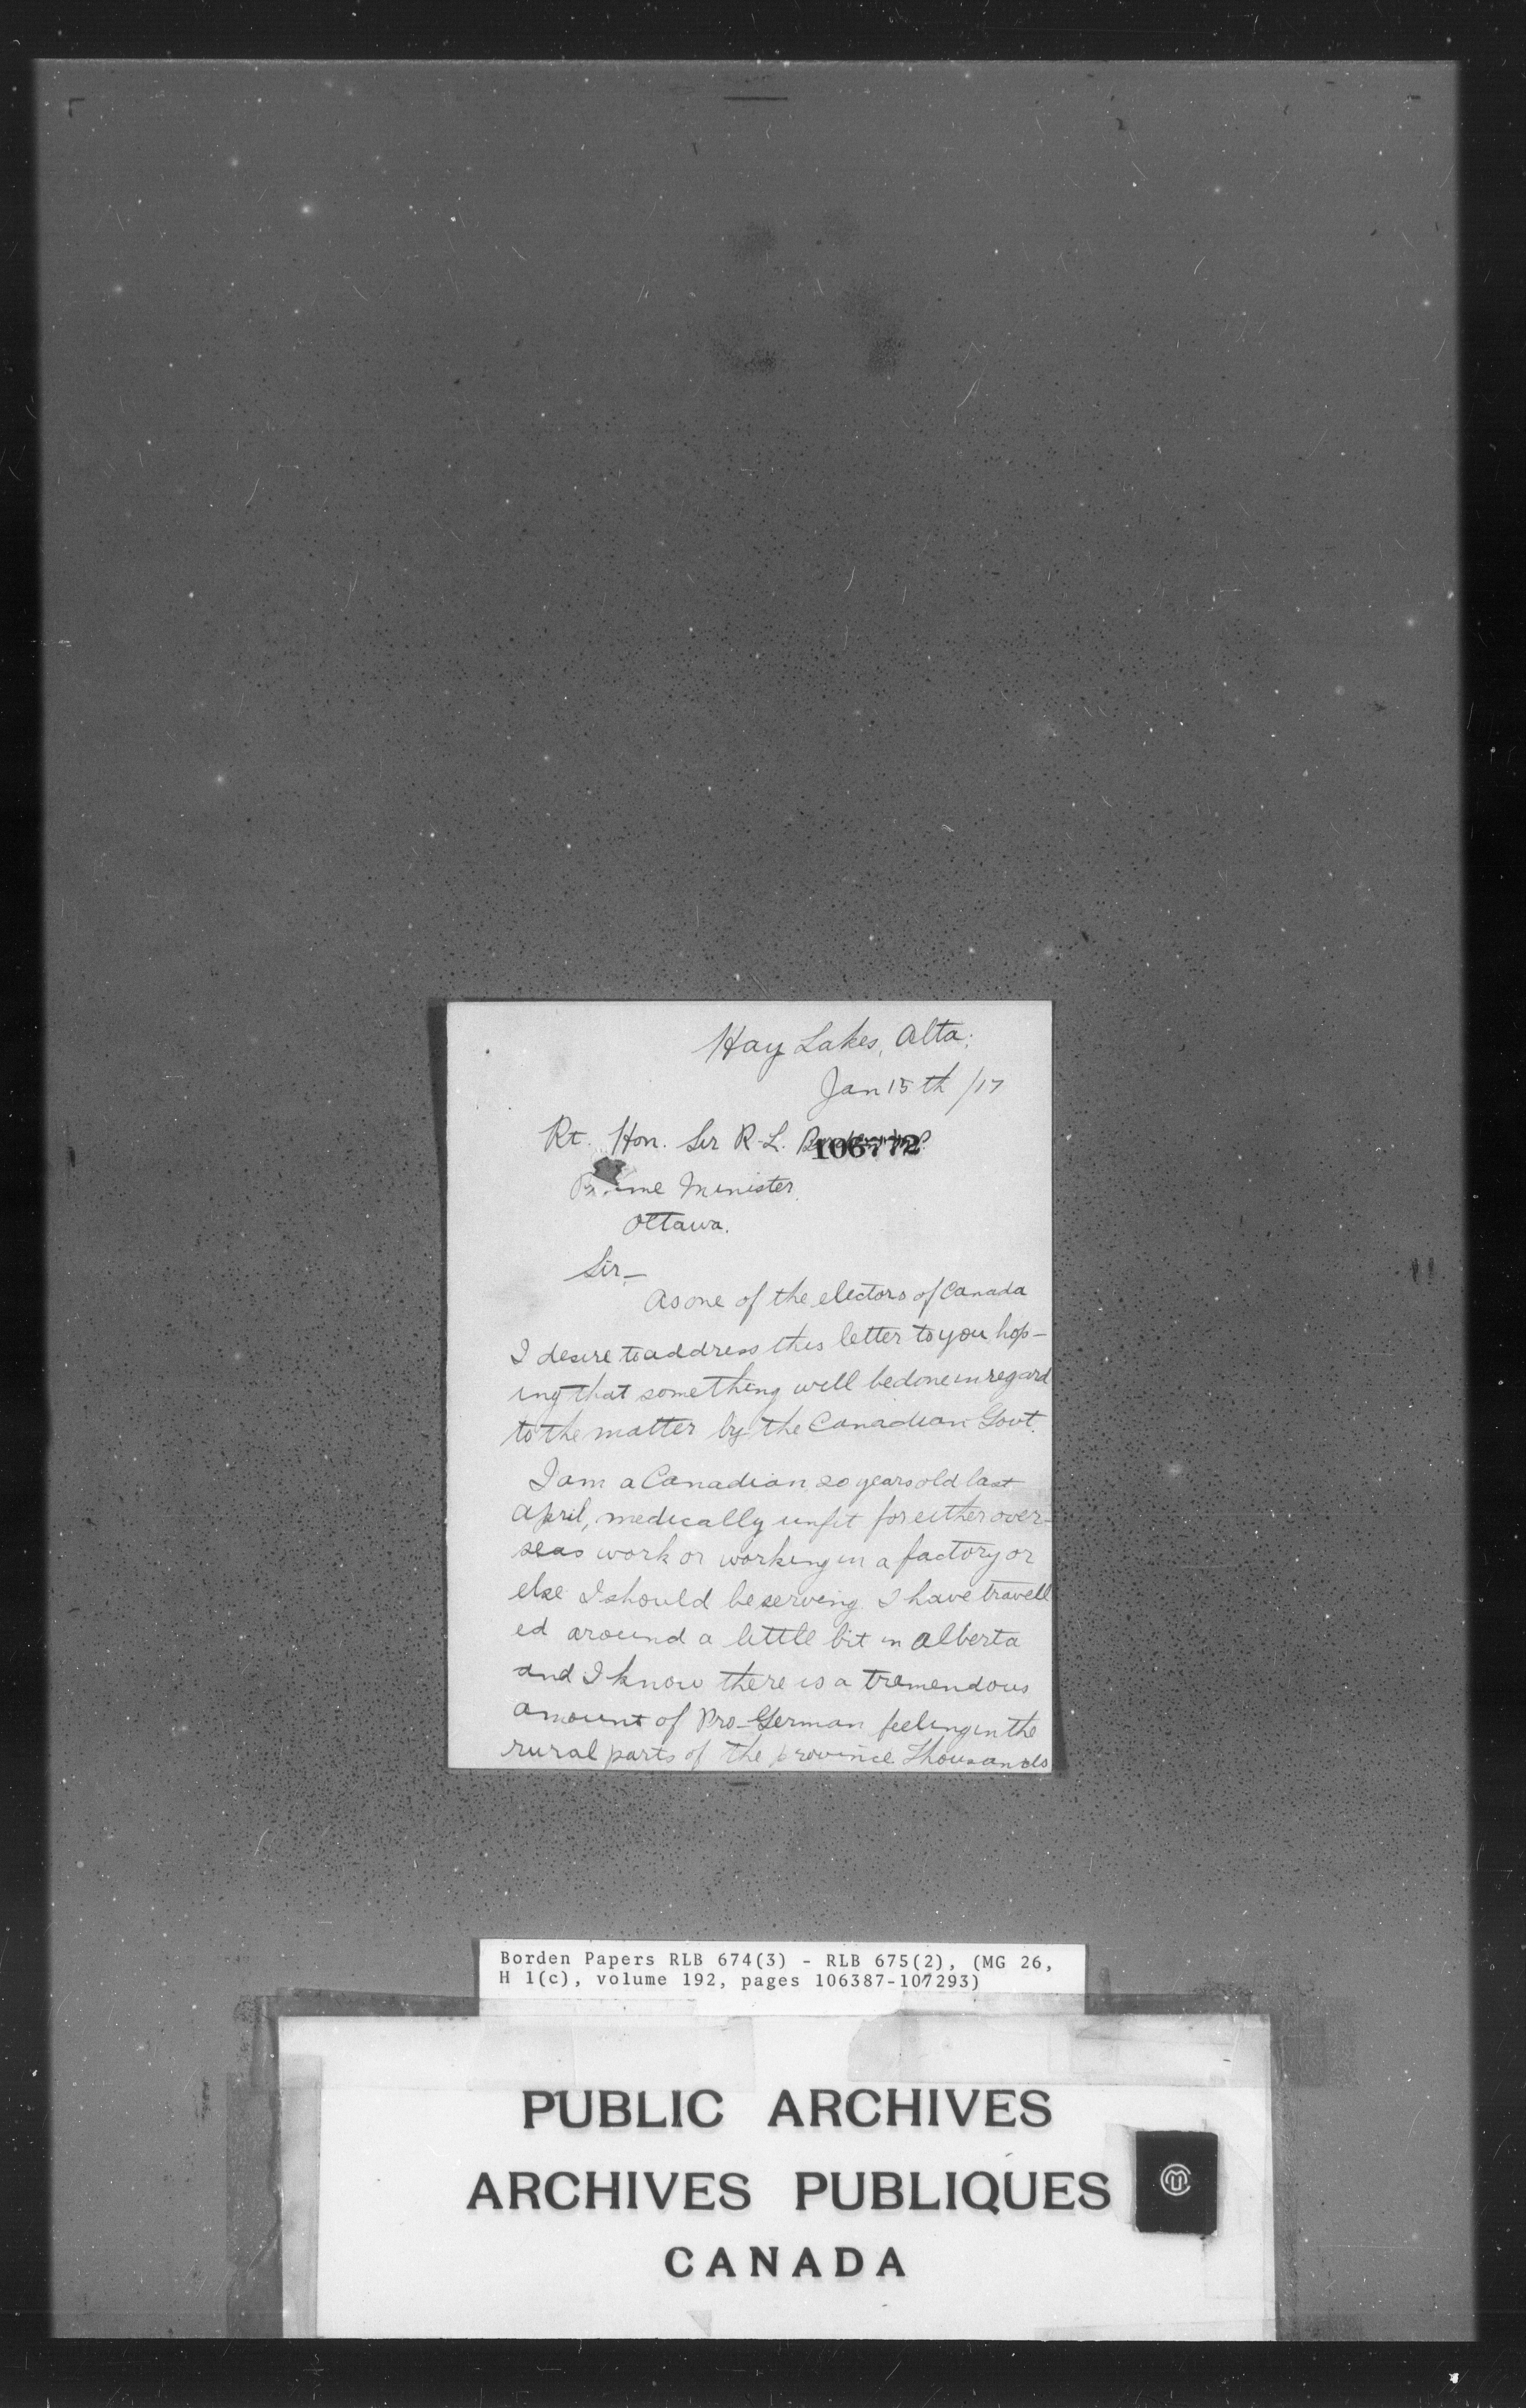 Hay Lakes, Alta.
Jan 15th /17
Rt. Hon. Sir R. L.
106772
Prime Minister
Ottawa.
Sir—
As one of the electors of Canada
I desire to address this letter to you hop-
ing that something will be done in regard
to the matter by the Canadian Govt.
I am a Canadian 20 years old last
April, medically unfit for either over-
seas work or working in a factory or
else I should be serving. I have travell
ed around a little bit in Alberta
and I know there is a tremendous
amount of Pro-German feeling in the
rural parts of the province Thousands
Borden Papers RLB 674(3) - RLB 675(2), (MG 26,
H 1(c), volume 192, pages 106387-107293)
PUBLIC ARCHIVES
ARCHIVES PUBLIQUES
CANADA